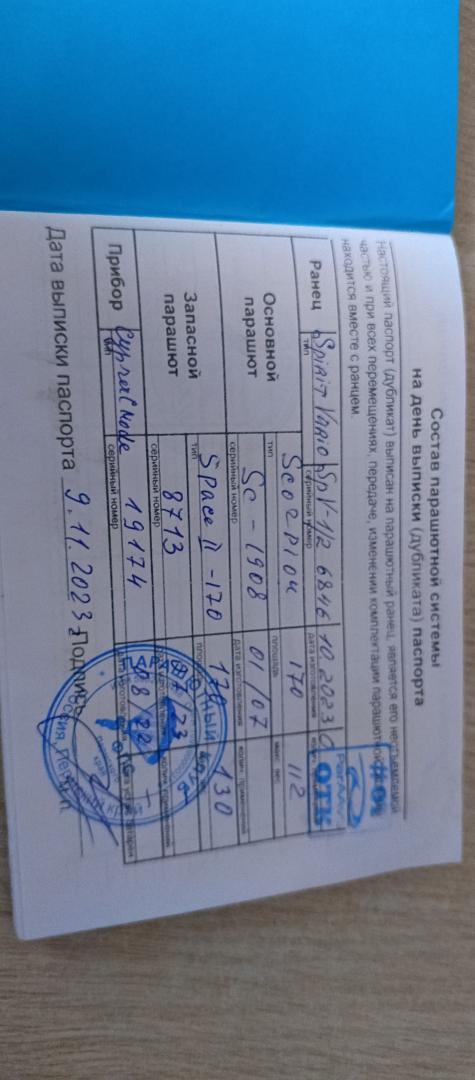 Состав парашютной системы
на день выписки (дубликата) паспорта
Настоящий паспорт (дубликат) выписан на парашютный ранец, является его неотъемлемой
частью и при всех перемещениях, передаче, изменении комплектации парашютной
находится вместе с ранцем.
Ранец Spirit Vario SpV-1/2 6846 10.2023
тип серийный номер дата изготовления
ОТК
Основной парашют
Scorpion 170 112
тип площадь макс. вес
Sc-1908 01/07 130
серийный номер дата изготовления колич. применений
Запасной парашют
Space II-170 170
тип площадь
8713 23
серийный номер
Прибор Cypres Mode 19174 08/22
тип серийный номер дата изготовления
Дата выписки паспорта 9.11.2023 Подпись
М.П.